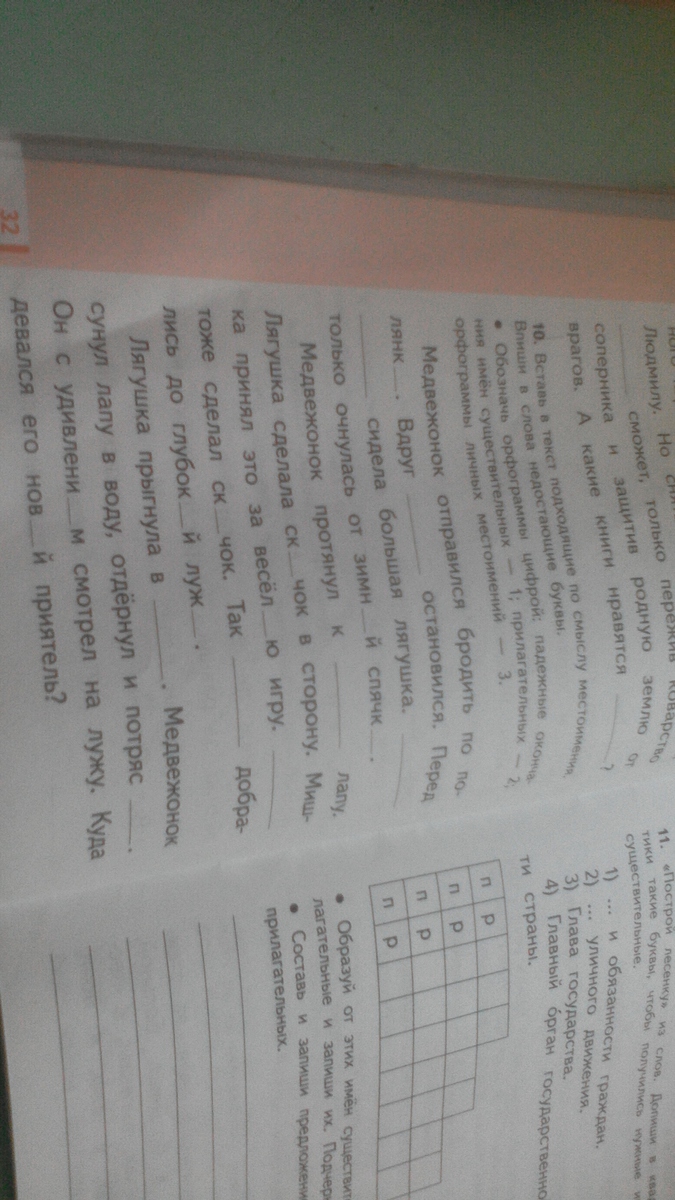 Людмилу. Но
сможет, только пережив коварство
соперника и защитив родную землю от
врагов. А какие книги нравятся ____?
10. Вставь в текст подходящие по смыслу местоимения.
Впиши в слова недостающие буквы.
• Обозначь орфограммы цифрой: падежные оконча-
ния имён существительных — 1; прилагательных — 2;
орфограммы личных местоимений — 3.
Медвежонок отправился бродить по по-
лянк__. Вдруг ____ остановился. Перед
____ сидела большая лягушка. ____
только очнулась от зимн__й спячк__.
Медвежонок протянул к ____ лапу.
Лягушка сделала ск__чок в сторону. Миш-
ка принял это за весёл__ю игру. ____
тоже сделал ск__чок. Так ____ добра-
лись до глубок__й луж__.
Лягушка прыгнула в ____. Медвежонок
сунул лапу в воду, отдёрнул и потряс ____.
Он с удивлени__м смотрел на лужу. Куда
девался его нов__й приятель?
32
11. «Построй лесенку» из слов. Допиши в
тики такие буквы, чтобы получились нужные
существительные.
1) ... и обязанности граждан.
2) ... уличного движения.
3) Глава государства.
4) Главный орган государственн
ти страны.
п р
п р
п р
п р
• Образуй от этих имён существит
лагательные и запиши их. Подчер
• Составь и запиши предложени
прилагательных.